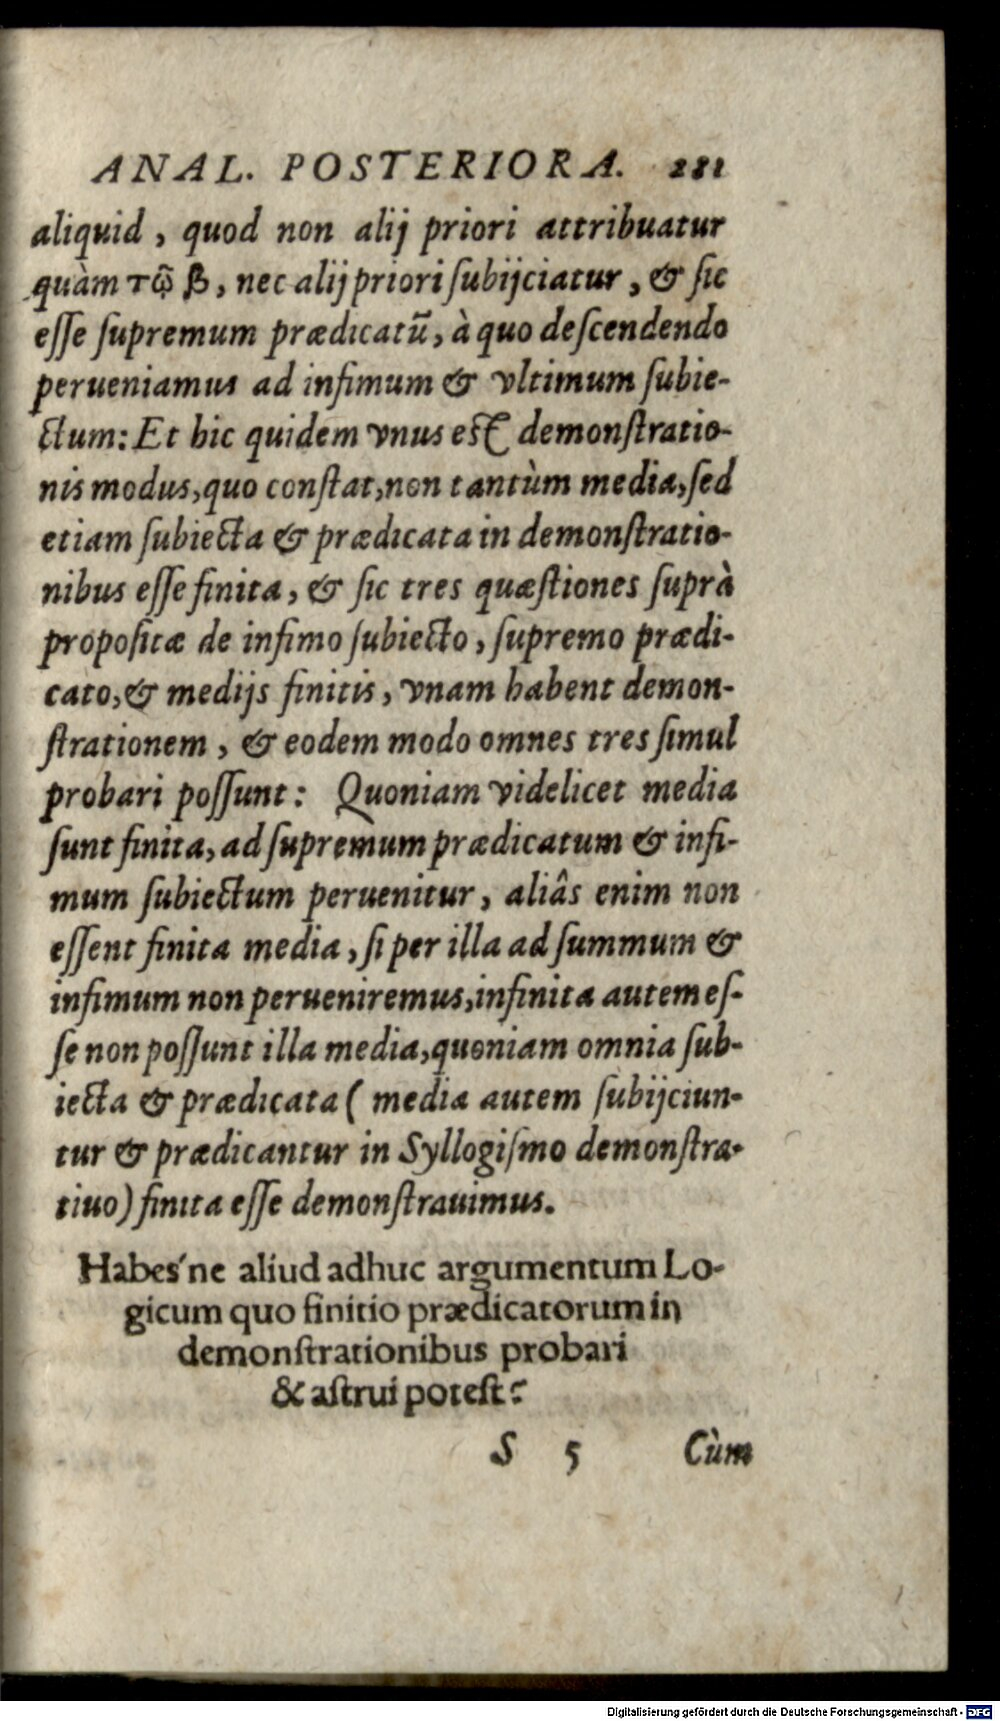 ANAL. POSTERIORA. 281
aliquid, quod non alij priori attribuatur
quàm τῷ β, nec alij priori ſubijciatur, & ſic
eſſe ſupremum prædicatũ, à quo deſcendendo
perueniamus ad infimum & vltimum ſubie-
ctum: Et hic quidem vnus eſt demonſtratio-
nis modus, quo conſtat, non tantùm media, ſed
etiam ſubiecta & prædicata in demonſtratio-
nibus eſſe finita, & ſic tres quæſtiones ſuprà
propoſitæ de infimo ſubiecto, ſupremo prædi-
cato, & medijs finitis, vnam habent demon-
ſtrationem, & eodem modo omnes tres ſimul
probari poſſunt: Quoniam videlicet media
ſunt finita, ad ſupremum prædicatum & infi-
mum ſubiectum peruenitur, aliâs enim non
eſſent finita media, ſi per illa ad ſummum &
infimum non perueniremus, infinita autem eſ-
ſe non poſſunt illa media, quoniam omnia ſub-
iecta & prædicata ( media autem ſubijciun-
tur & prædicantur in Syllogiſmo demonſtra-
tiuo) finita eſſe demonſtrauimus.
Habes'ne aliud adhuc argumentum Lo-
gicum quo finitio prædicatorum in
demonſtrationibus probari
& aſtrui poteſt?
S 5 Cùm
Digitalisierung gefördert durch die Deutsche Forschungsgemeinschaft - DFG